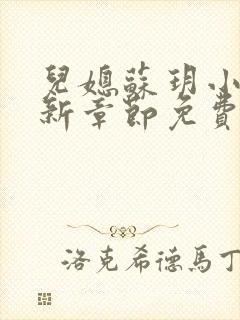 兒媳蘇玥小
新章節免費
洛克希德馬丁